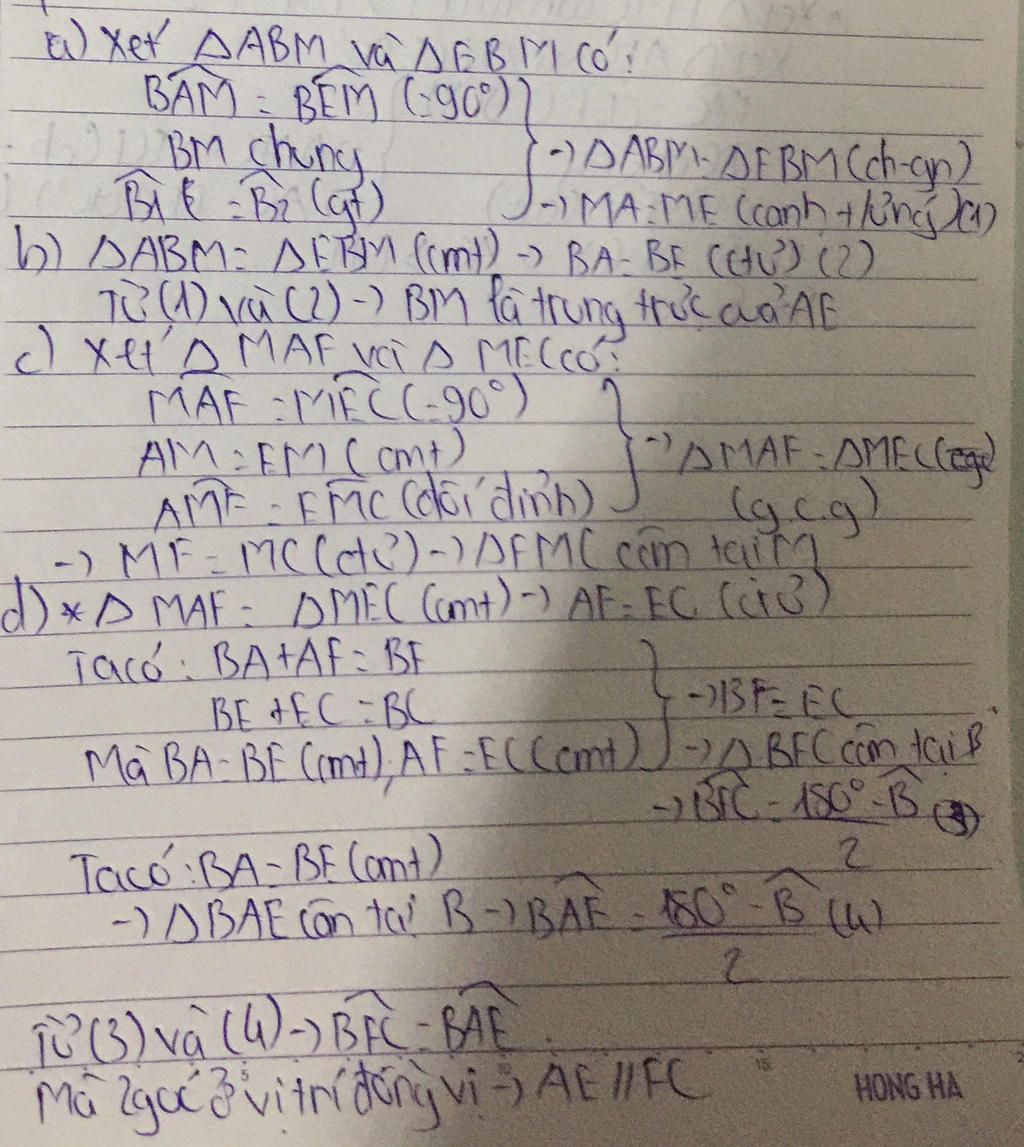 a) Xét ΔABM và ΔEBM có:
BAM = BEM (=90°)
BM chung → ΔABM = ΔEBM (ch-gn)
B1 = B2 (gt) → MA = ME (cạnh tứng) (1)
b) ΔABM = ΔEBM (cmt) → BA = BE (ctứ) (2)
Từ (1) và (2) → BM là trung trực của AE
c) Xét Δ MAF và Δ MEC có:
MAF = MEC (=90°)
AM = EM (cmt) → ΔMAF = ΔMEC
AMF = EMC (đối đỉnh) (g.c.g)
→ MF = MC (ctứ) → ΔFMC cân tại M
d) * Δ MAF = ΔMEC (cmt) → AF = EC (ctứ)
Ta có: BA + AF = BF
BE + EC = BC → BF = EC
Mà BA = BE (cmt), AF = EC (cmt) → Δ BFC cân tại B
→ BFC = 180° - B (3)
2
Ta có: BA = BE (cmt)
→ ΔBAE cân tại B → BAE = 180° - B (4)
2
Từ (3) và (4) → BFC = BAE.
Mà 2 góc ở vị trí đồng vị → AE // FC
HONG HA